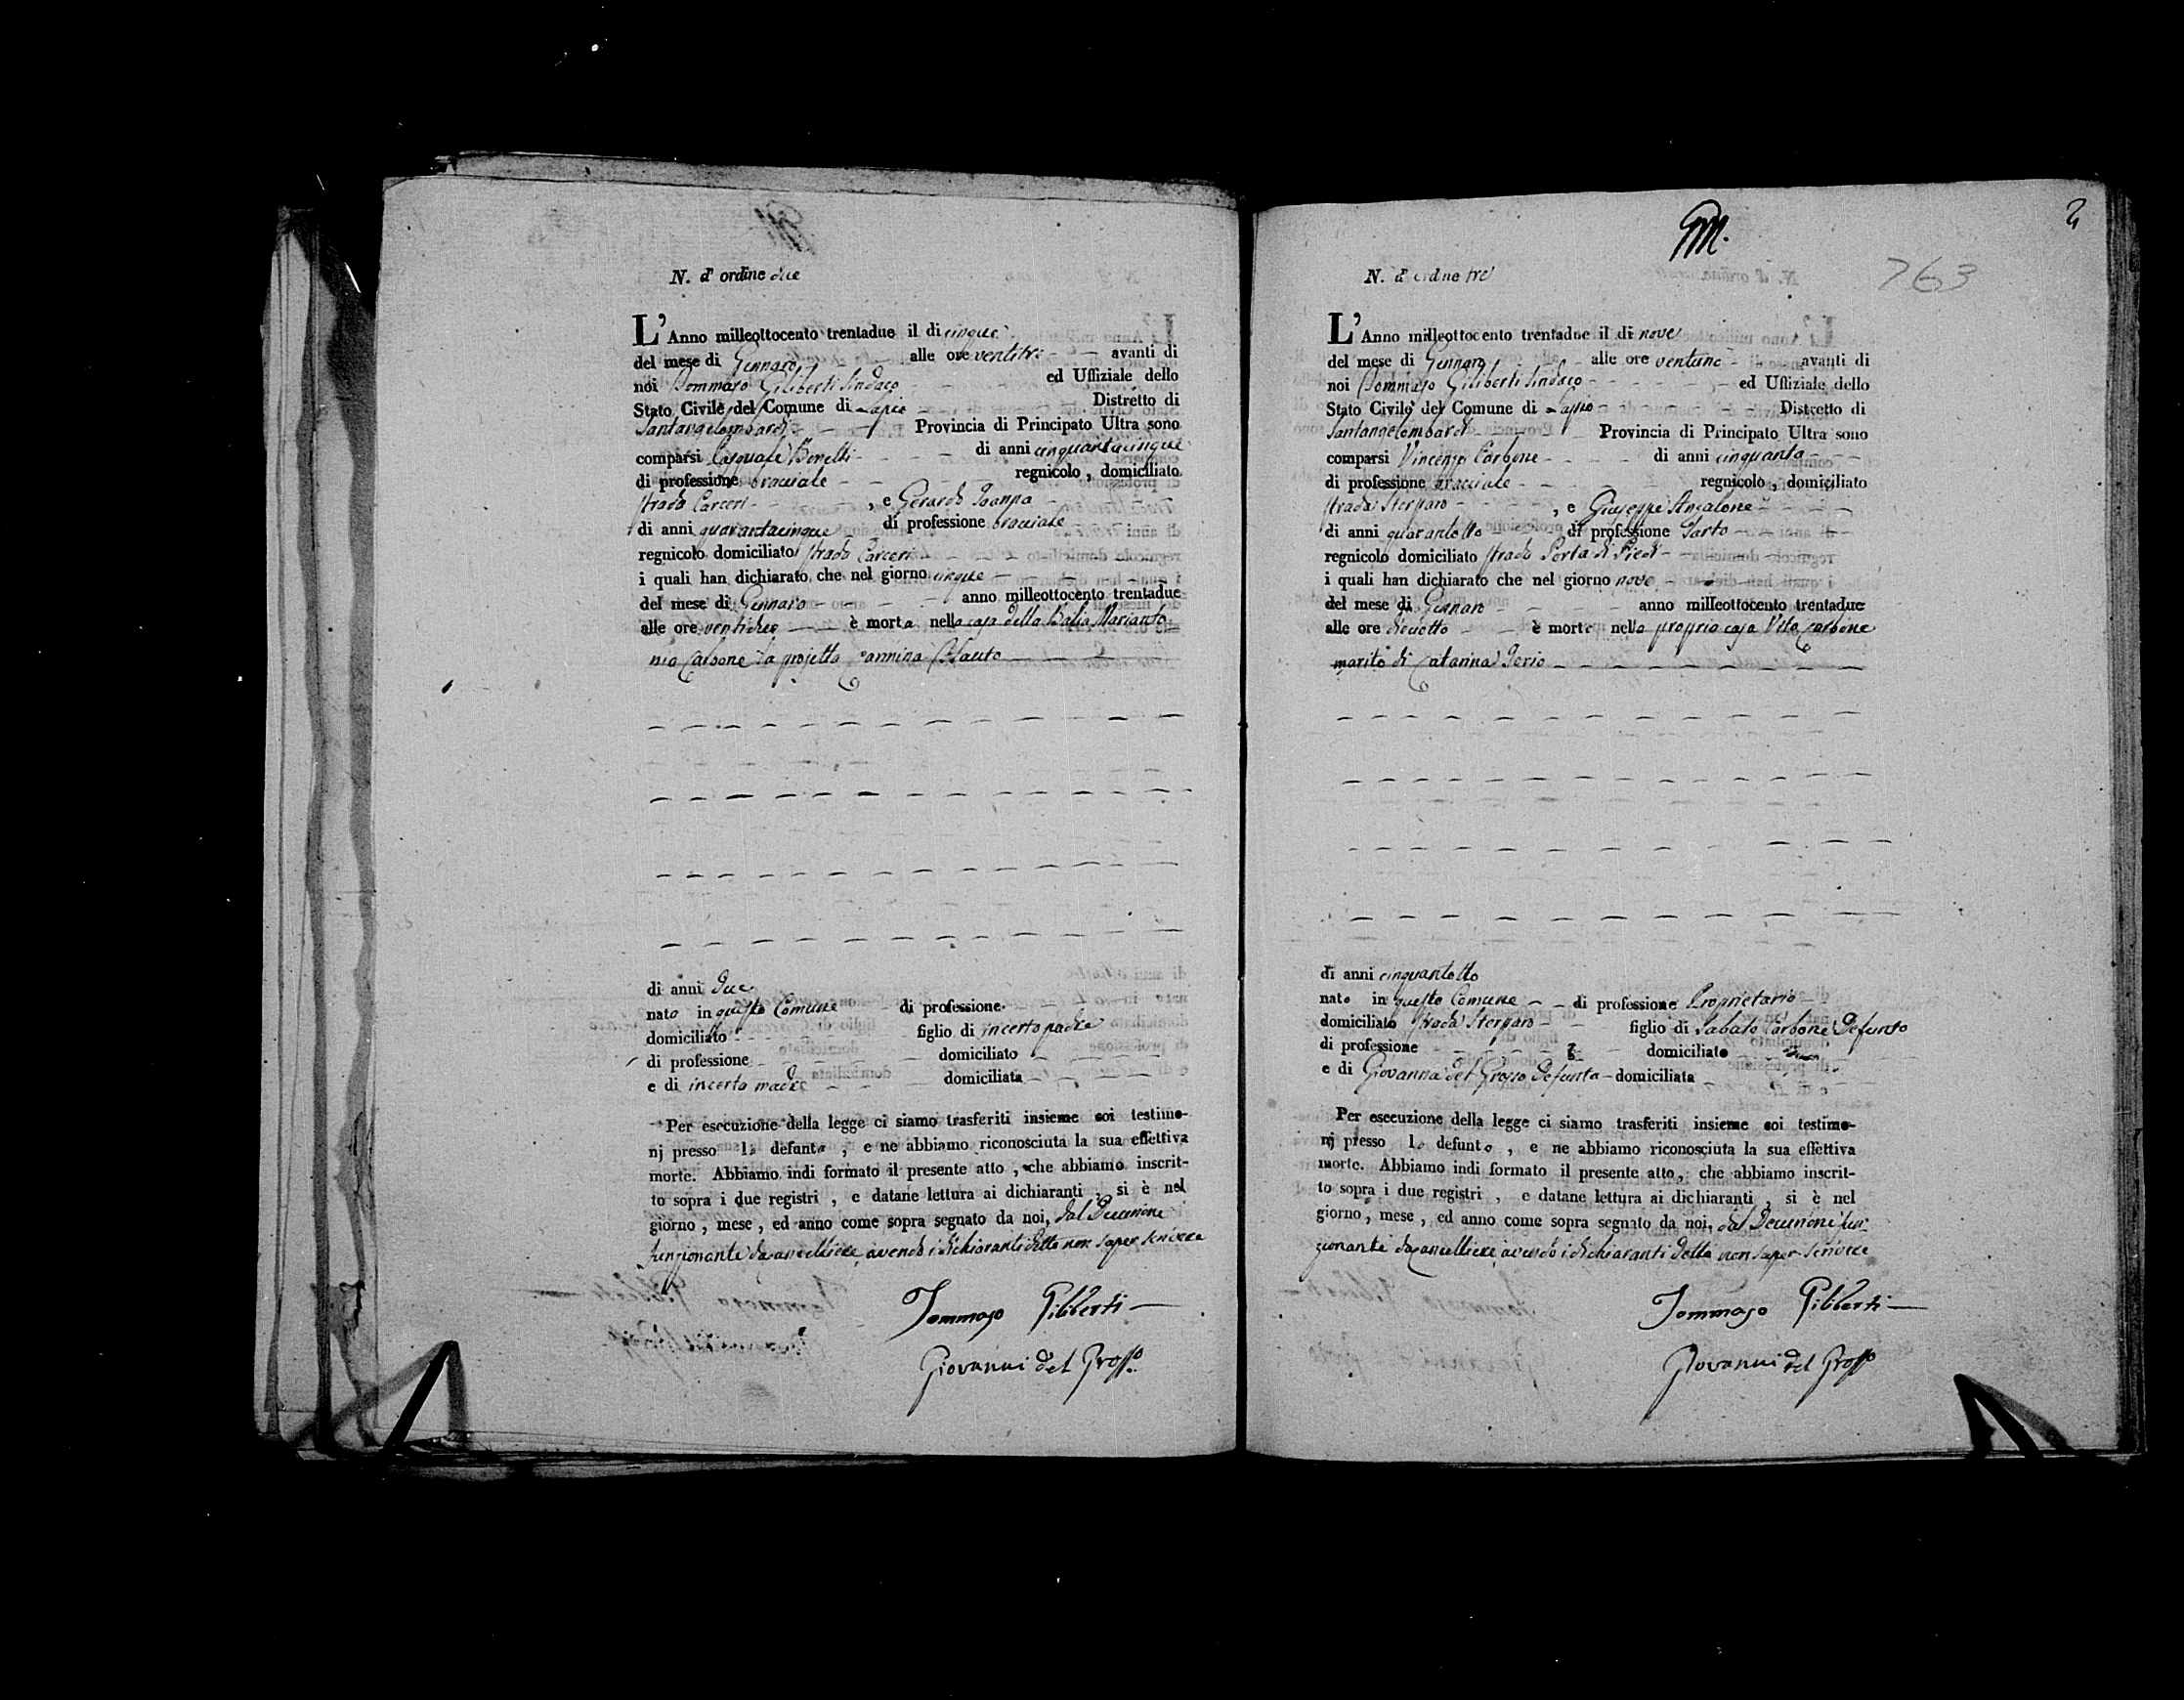 N. d' ordine due
L'Anno milleottocento trentadue il di cinque
del mese di Gennaro alle ore ventitre avanti di
noi Tommaso Giliberti Sindaco ed Uffiziale dello
Stato Civile del Comune di Lapio Distretto di
Santangelombardi Provincia di Principato Ultra sono
comparsi Pasquale Borelli di anni cinquantacinque
di professione bracciale regnicolo, domiciliato
strada Carceri, e Gerardo
di anni quarantacinque di professione bracciale
regnicolo domiciliato strada Carceri
i quali han dichiarato che nel giorno cinque
del mese di Gennaro anno milleottocento trentadue
alle ore ventidue è morta nella casa della Balia Marianto
nia Carbone la projetta
di anni due
nato in questo Comune di professione
domiciliato figlio di incerto padre
di professione domiciliato
e di incerta madre domiciliata
Per esecuzione della legge ci siamo trasferiti insieme coi testimo-
nj presso la defunta, e ne abbiamo riconosciuta la sua effettiva
morte. Abbiamo indi formato il presente atto, che abbiamo inscrit-
to sopra i due registri, e datane lettura ai dichiaranti, si è nel
giorno, mese, ed anno come sopra segnato da noi, dal Decurione
funzionante da Cancelliere, avendo i dichiaranti detto non saper scrivere
Tommaso Giliberti
Giovanni del Grosso
2
763
N. d' ordine tre
L'Anno milleottocento trentadue il di nove
del mese di Gennaro alle ore ventuno avanti di
noi Tommaso Giliberti Sindaco ed Uffiziale dello
Stato Civile del Comune di Lapio Distretto di
Santangelombardi Provincia di Principato Ultra sono
comparsi Vincenzo Carbone di anni cinquanta
di professione bracciale regnicolo, domiciliato
strada Sterparo, e Giuseppe Anzalone
di anni quarantotto di professione Sarto
regnicolo domiciliato strada Porta di Piedi
i quali han dichiarato che nel giorno nove
del mese di Gennaro anno milleottocento trentadue
alle ore dieciotto è morto nella propria casa Vito Carbone
marito di Catarina Jerio
di anni cinquantotto
nato in questo Comune di professione Proprietario
domiciliato strada Sterparo figlio di Sabato Carbone Defunto
di professione domiciliato
e di Giovanna del Grosso Defunta domiciliata
Per esecuzione della legge ci siamo trasferiti insieme coi testimo-
nj presso lo defunto, e ne abbiamo riconosciuta la sua effettiva
morte. Abbiamo indi formato il presente atto, che abbiamo inscrit-
to sopra i due registri, e datane lettura ai dichiaranti, si è nel
giorno, mese, ed anno come sopra segnato da noi, dal Decurione fun-
zionante da Cancelliere, avendo i dichiaranti detto non saper scrivere
Tommaso Giliberti
Giovanni del Grosso